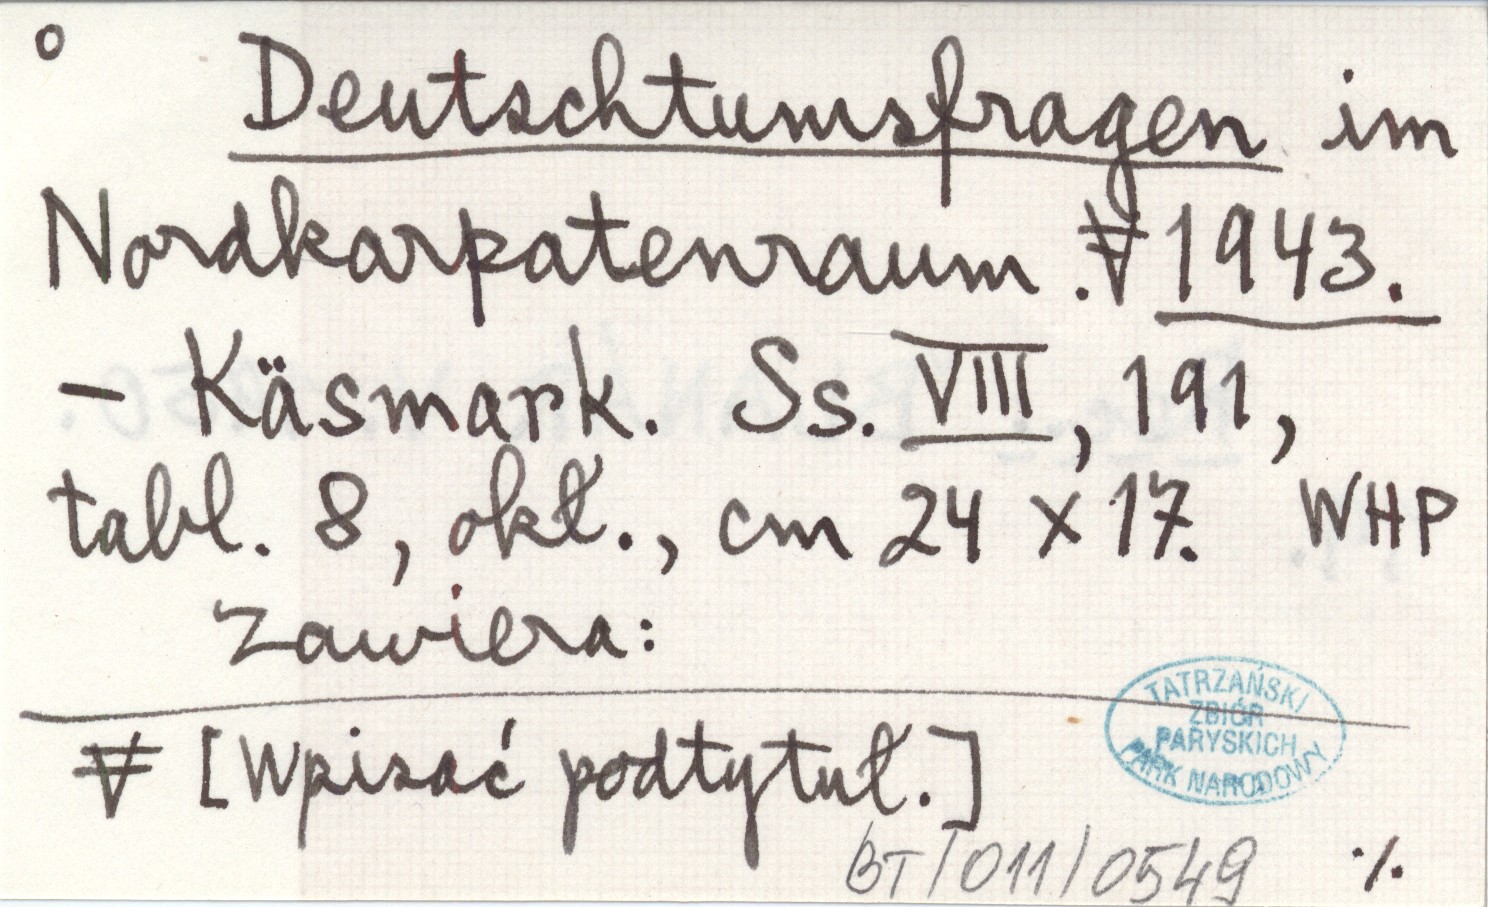 ° Deutschtumsfragen im
Nordkarpatenraum. 1943.
– Käsmark. Ss. VIII, 191,
tabl. 8, okł., cm 24 x 17. WHP
Zawiera:
[Wpisać podtytuł.]
TATRZAŃSKI
ZBIÓR
PARYSKICH
PARK NARODOWY
BT/011/0549 ·/.